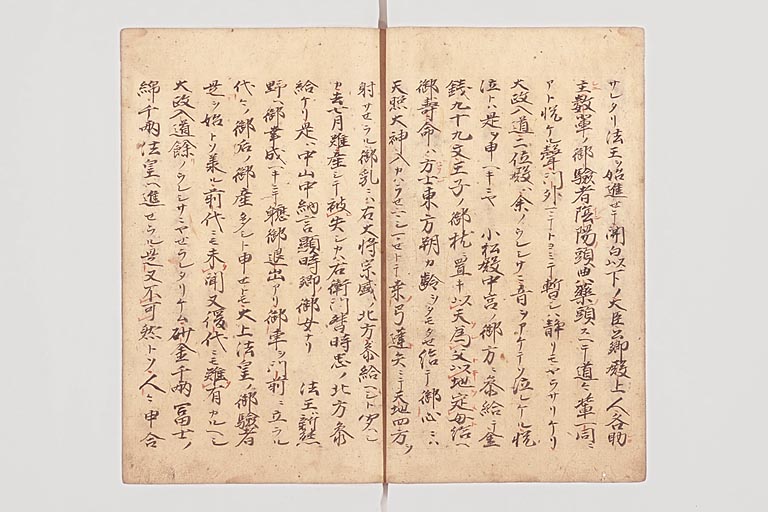 サレタリ法王ヲ始進セテ関白以下ノ大臣公卿殿上人各助
主数輩ノ御驗者陰陽頭典藥頭スヘテ道々輩一同ニ
アト悦ケル聲門外ニテトヨミテ暫シハ静リモヤラサリケリ
大政入道二位殿ハ余ノウレシサニ音ヲアケテソ泣レケル悦
泣トハ是ヲ申ヘキニヤ 小松殿中宮ノ御方ニ参給テ金
錢九十九文王子ノ御枕ニ置キ以天為父以地定母給ヘ
御壽命ハ方士東方朔カ齢ヲタモタセ給テ御心ニハ
天照大神入カハラセトテ桒弓蓬矢ニテ天地四方ヲ
射サセラル御乳ニハ右大将宗盛ノ北方参給ヘシト聞ヘシ
カ去七月難産シテ被失シカハ右衛門督時忠ノ北方参
給ケリ是ハ中山中納言顕時卿御女ナリ 法王ハ新熊
野ヘ御幸成ヘキニテ軈御退出アリ御車ヲ門前ニ立ラル
代々ノ御后ノ御産多シト申セトモ大上法皇ノ御驗者
是ヲ始トソ前代ニモ未聞又後代ニモ難有カルヘシ
大政入道餘ノウレシサニヤラレタリケム砂金千両冨士ノ
綿千両法皇ヘ進セラル是又不可然トソ人々申合